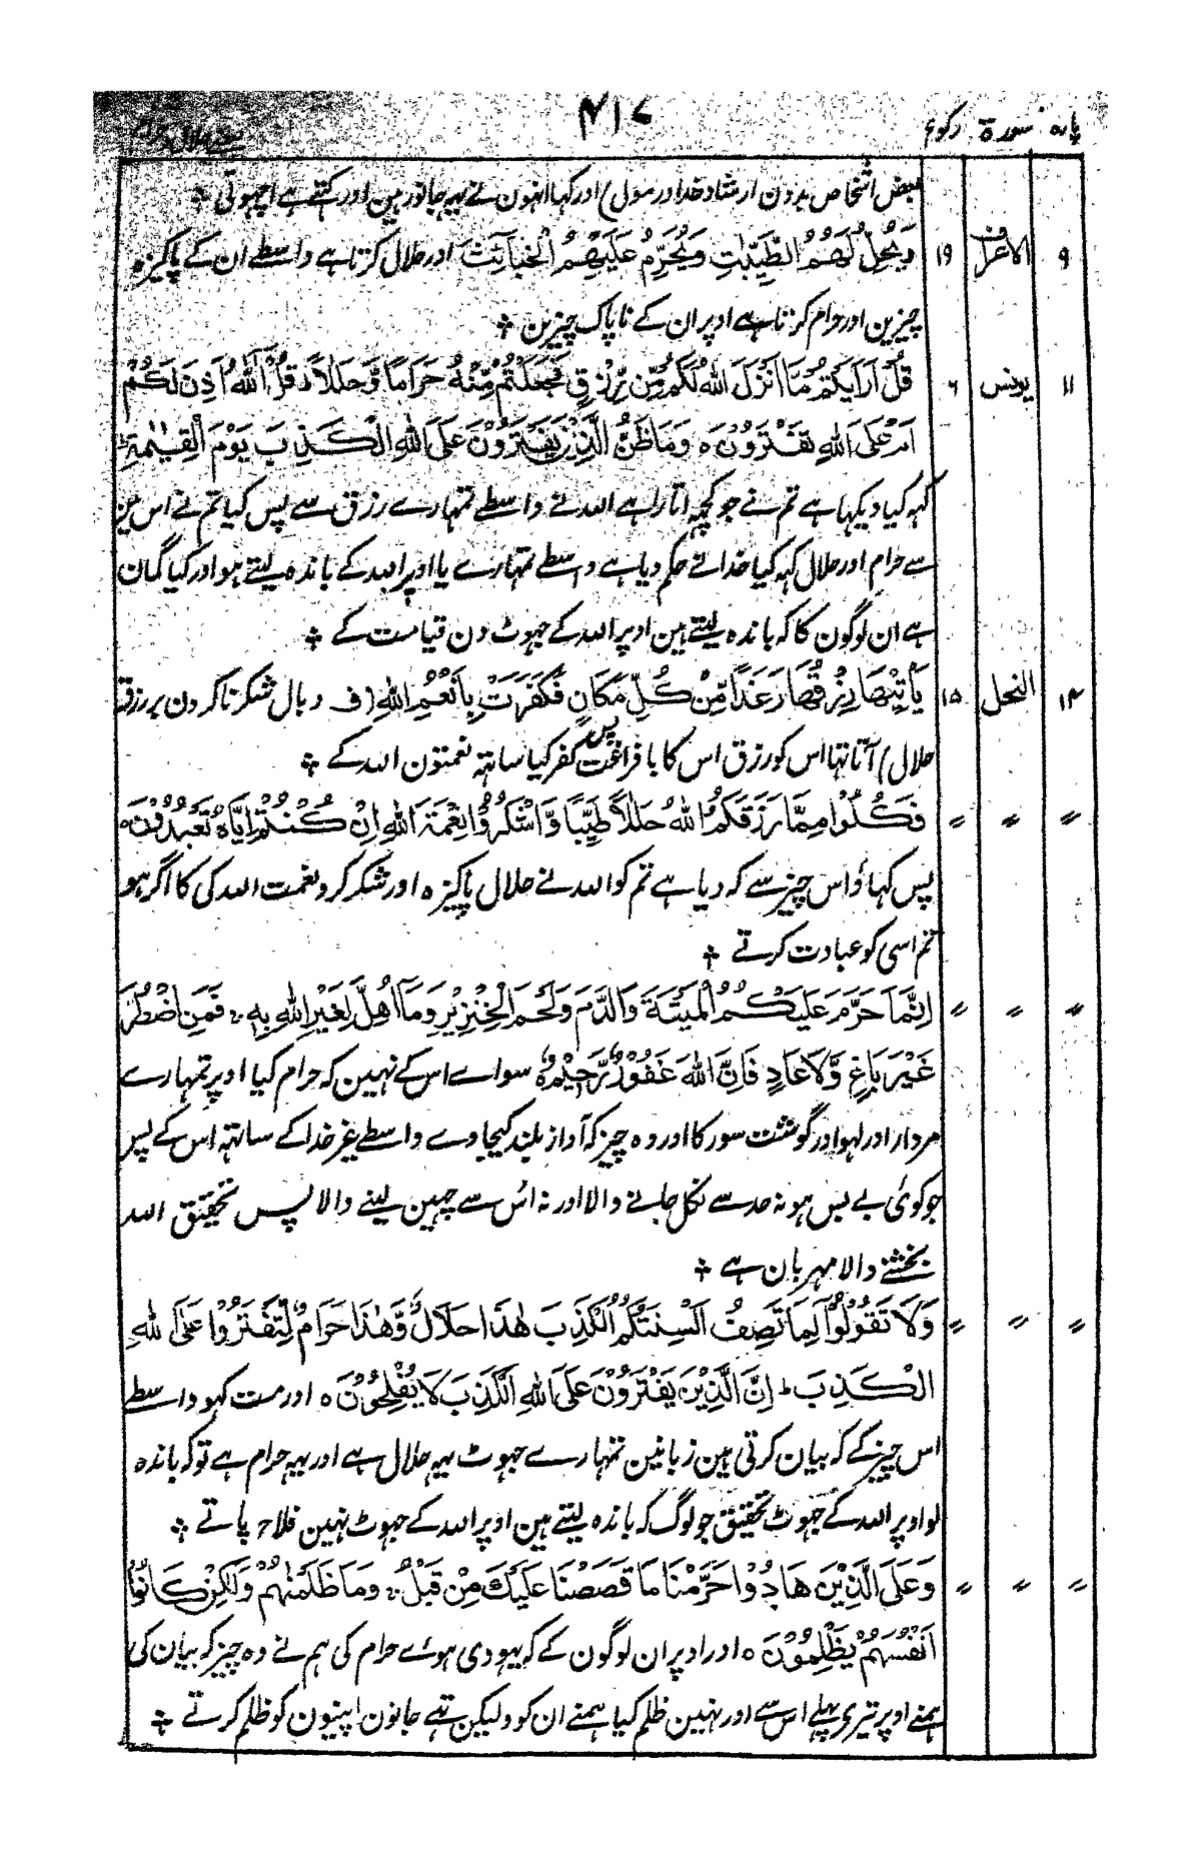 پارہ سورۃ رکوع ۴۱۷
بعض اشخاص بدون ارشاد خدا و رسول) اور کہا انہون نے یہہ جانور ہین اور کہتے ہے اچھوتی ÷
۹ الاعراف ۱۹ وَيُحِلُّ لَهُمُ الطَّيِّبٰتِ وَيُحَرِّمُ عَلَيْهِمُ الْخَبَآئِثَ اور حلال کرتا ہے واسطے ان کے پاکیزہ
چیزین اور حرام کرتا ہے اوپر ان کے ناپاک چیزین ÷
۱۱ یونس ۶ قُلْ اَرَاَيْتُمْ مَّا اَنْزَلَ اللّٰهُ لَكُمْ مِّنْ رِّزْقٍ فَجَعَلْتُمْ مِّنْهُ حَرَامًا وَّحَلٰلًا ؕ قُلْ آٰللّٰهُ اَذِنَ لَكُمْ
اَمْ عَلَى اللّٰهِ تَفْتَرُوْنَ ہ وَمَا ظَنُّ الَّذِيْنَ يَفْتَرُوْنَ عَلَى اللّٰهِ الْكَذِبَ يَوْمَ الْقِيٰمَةِ ؕ
کہہ کیا دیکہا ہے تم نے جو کچہہ اتارا ہے اللہ نے واسطے تمہارے رزق سے پس کیا تم نے اس مین
سے حرام اور حلال کہہ کیا خدا نے حکم دیا ہے واسطے تمہارے یا اوپر اللہ کے باندہ لیتے ہو اور کیا گمان
ہے ان لوگون کا کہ باندہ لیتے ہین اوپر اللہ کے جہوٹ دن قیامت کے ÷
۱۴ النحل ۱۵ يَاْتِيْهَا رِزْقُهَا رَغَدًا مِّنْ كُلِّ مَكَانٍ فَكَفَرَتْ بِاَنْعُمِ اللّٰهِ (ف وبال شکر نا کردن بر رزق
حلال) آتا تہا اس کو رزق اس کا با فراغت پس کفر کیا ساتہہ نعمتون اللہ کے ÷
〃 〃 〃 فَكُلُوْا مِمَّا رَزَقَكُمُ اللّٰهُ حَلٰلًا طَيِّبًا وَّاشْكُرُوْا نِعْمَةَ اللّٰهِ اِنْ كُنْتُمْ اِيَّاهُ تَعْبُدُوْنَ ہ
پس کہاؤ اس چیز سے کہ دیا ہے تم کو اللہ نے حلال پاکیزہ اور شکر کرو نعمت اللہ کی کا اگر ہو
تم اسی کو عبادت کرتے ÷
〃 〃 〃 اِنَّمَا حَرَّمَ عَلَيْكُمُ الْمَيْتَةَ وَالدَّمَ وَلَحْمَ الْخِنْزِيْرِ وَمَآ اُهِلَّ لِغَيْرِ اللّٰهِ بِهٖ ۚ فَمَنِ اضْطُرَّ
غَيْرَ بَاغٍ وَّلَا عَادٍ فَاِنَّ اللّٰهَ غَفُوْرٌ رَّحِيْمٌ ہ سواے اس کے نہین کہ حرام کیا اوپر تمہارے
مردار اور لہو اور گوشت سور کا اور وہ چیز کہ آواز بلند کیجاوے واسطے غیر خدا کے ساتہہ اس کے پس
جو کوئی بے بس ہو نہ حد سے نکل جانے والا اور نہ اُس سے چہین لینے والا پس تحقیق اللہ
بخشنے والا مہربان ہے ÷
〃 〃 〃 وَلَا تَقُوْلُوْا لِمَا تَصِفُ اَلْسِنَتُكُمُ الْكَذِبَ هٰذَا حَلَالٌ وَّهٰذَا حَرَامٌ لِّتَفْتَرُوْا عَلَى اللّٰهِ
الْكَذِبَ ؕ اِنَّ الَّذِيْنَ يَفْتَرُوْنَ عَلَى اللّٰهِ الْكَذِبَ لَا يُفْلِحُوْنَ ہ اور مت کہو واسطے
اس چیز کے کہ بیان کرتی ہین زبانین تمہارے جہوٹ یہہ حلال ہے اور یہہ حرام ہے تو کہ باندہ
لو اوپر اللہ کے جہوٹ تحقیق جو لوگ کہ باندہ لیتے ہین اوپر اللہ کے جہوٹ نہین فلاح پاتے ÷
〃 〃 〃 وَعَلَى الَّذِيْنَ هَادُوْا حَرَّمْنَا مَا قَصَصْنَا عَلَيْكَ مِنْ قَبْلُ ۚ وَمَا ظَلَمْنٰهُمْ وَلٰكِنْ كَانُوْا
اَنْفُسَهُمْ يَظْلِمُوْنَ ہ اور اوپر ان لوگون کے کہ یہودی ہوئے حرام کی ہم نے وہ چیز کہ بیان کی
ہمنے اوپر تیری پہلے اس سے اور نہین ظلم کیا ہمنے ان کو ولیکن تہے جانون اپنیون کو ظلم کرتے ÷